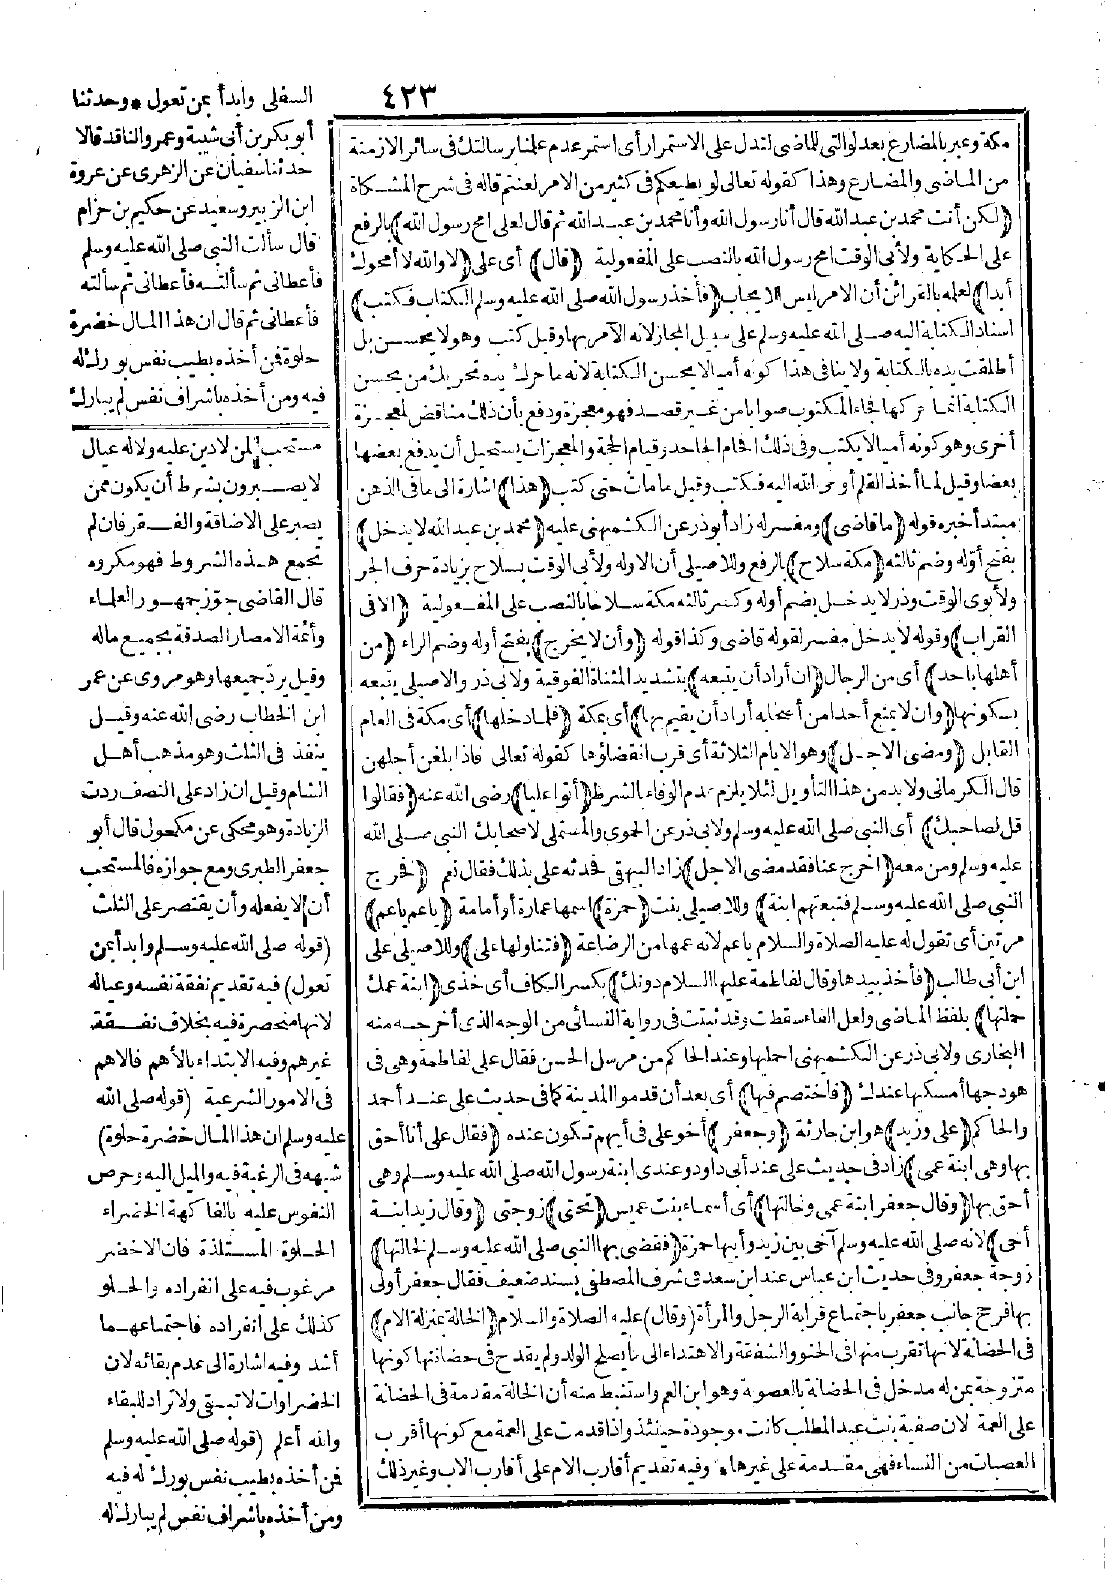 ٤٢٣
مكة وعبر بالمضارع بعد لو التي للماضي لتدل على الاستمرار أى استمر عدم علمنا برسالتك فى سائر الازمنة
من الماضى والمضارع وهذا كقوله تعالى لو يطيعكم فى كثير من الامر لعنتم قاله فى شرح المشكاة
(لكن أنت محمد بن عبد الله قال أنا رسول الله وأنا محمد بن عبد الله ثم قال لعلى امح رسول الله) بالرفع
على الحكاية ولابى الوقت امح رسول الله بالنصب على المفعولية (قال) أى على (لا والله لا أمحوك
أبدا) لعلمه بالقرائن أن الامر ليس للايجاب (فأخذ رسول الله صلى الله عليه وسلم الكتاب فكتب)
اسناد الكتابة اليه صلى الله عليه وسلم على سبيل المجاز لانه الآمر بها وقيل كتب وهو لا يحسن بل
أطلقت يده بالكتابة ولا ينافى هذا كونه أميا لا يحسن الكتابة لانه ما حرك يده تحريك من يحسن
الكتابة انما حركها فجاء المكتوب صوابا من غير قصد فهو معجزة ودفع بأن ذلك مناقض لمعجزة
أخرى وهو كونه أميا لا يكتب وفى ذلك افحام الجاحد وقيام الحجة والمعجزات يستحيل أن يدفع بعضها
بعضا وقيل لما أخذ القلم أوحى الله اليه فكتب وقيل ما مات حتى كتب (هذا) اشارة الى ما فى الذهن
مبتدأ خبره قوله (ما قاضى) ومفسر له زاد أبو ذر عن الكشميهنى عليه (محمد بن عبد الله لا يدخل)
بفتح أوله وضم ثالثه (مكة سلاح) بالرفع وللاصيلى أن الاوله ولأبى الوقت بسلاح بزيادة حرف الجر
ولأبوى الوقت وذر لا يدخل بضم أوله وكسر ثالثه مكة سلاحا بالنصب على المفعولية (الا فى
القراب) وقوله لا يدخل مفسر لقوله قاضى وكذا قوله (وأن لا يخرج) بفتح أوله وضم الراء (من
أهلها باحد) أى من الرجال (ان أراد أن يتبعه) بتشديد المثناة الفوقية ولابى ذر والاصيلى يتبعه
بسكونها (وان لا يمنع أحدا من أصحابه أراد أن يقيم بها) أى بمكة (فلما دخلها) أى مكة فى العام
القابل (ومضى الاجل) وهو الايام الثلاثة أى قرب انقضاؤها كقوله تعالى فاذا بلغن أجلهن
قال الكرمانى ولا بد من هذا التأويل لئلا يلزم عدم الوفاء بالشرط (أتوا عليا) رضى الله عنه (فقالوا
قل لصاحبك) أى النبى صلى الله عليه وسلم ولابى ذر عن الحموى والمستملى لاصحابك النبى صلى الله
عليه وسلم ومن معه (اخرج عنا فقد مضى الاجل) زاد البيهقى فحدثه على بذلك فقال نعم (فخرج
النبى صلى الله عليه وسلم فتبعتهم ابنة) وللاصيلى بنت (حمزة) اسمها عمارة أو أمامة (يا عم يا عم)
مرتين أى تقول له عليه الصلاة والسلام يا عم لانه عمها من الرضاعة (فتناولها على) وللاصيلى على
ابن أبى طالب (فأخذ بيدها وقال لفاطمة عليها السلام دونك) بكسر الكاف أى خذى (ابنة عمك
حملتها) بلفظ الماضى ولعل الفاء سقطت وقد ثبتت فى رواية النسائى من الوجه الذى أخرجه منه
البخارى ولابى ذر عن الكشميهنى احمليها وعند الحاكم من مرسل الحسن فقال على لفاطمة وهى فى
هودجها أمسكيها عندك (فاختصم فيها) أى بعد أن قدموا المدينة كما فى حديث على عند أحمد
والحاكم (على وزيد) هو ابن حارثة (وجعفر) أخو على فى أيهم تكون عنده (فقال على أنا أحق
بها وهى ابنة عمى) زاد فى حديث على عند أبى داود وعندى ابنة رسول الله صلى الله عليه وسلم وهى
أحق بها (وقال جعفر ابنة عمى وخالتها) أى أسماء بنت عميس (تحتى) زوجتى (وقال زيد ابنة
أخى) لانه صلى الله عليه وسلم آخى بين زيد وأبيها حمزة (فقضى بها النبى صلى الله عليه وسلم لخالتها)
زوجة جعفر وفى حديث ابن عباس عند ابن سعد فى شرف المصطفى بسند ضعيف فقال جعفر أولى
بها فرجح جانب جعفر باجتماع قرابة الرجل والمرأة (وقال) عليه الصلاة والسلام (الخالة بمنزلة الام)
فى الحضانة لانها تقرب منها فى الحنو والشفقة والاهتداء الى ما يصلح الولد ولم يقدح فى حضانتها كونها
متزوجة بمن له مدخل فى الحضانة بالعصوبة وهو ابن العم واستنبط منه أن الخالة مقدمة فى الحضانة
على العمة لان صفية بنت عبد المطلب كانت موجودة حينئذ واذا قدمت على العمة مع كونها أقرب
العصبات من النساء فهى مقدمة على غيرها * وفيه تقديم أقارب الام على أقارب الاب وغير ذلك
السفلى وابدأ بمن تعول * وحدثنا
أبو بكر بن أبى شيبة وعمرو الناقد قالا
حدثنا سفيان عن الزهرى عن عروة
ابن الزبير وسعيد عن حكيم بن حزام
قال سألت النبى صلى الله عليه وسلم
فأعطانى ثم سألته فأعطانى ثم سألته
فأعطانى ثم قال ان هذا المال خضرة
حلوة فمن أخذه بطيب نفس بورك له
فيه ومن أخذه باشراف نفس لم يبارك
مستحب لمن لا دين عليه ولا له عيال
لا يصبرون بشرط أن يكون ممن
يصبر على الاضاقة والفقر فان لم
تجمع هذه الشروط فهو مكروه
قال القاضى جوز جمهور العلماء
وأئمة الامصار الصدقة بجميع ماله
وقيل يرد جميعها وهو مروى عن عمر
ابن الخطاب رضى الله عنه وقيل
ينفذ فى الثلث وهو مذهب أهل
الشام وقيل ان زاد على النصف ردت
الزيادة وهو محكى عن مكحول قال أبو
جعفر الطبرى ومع جوازه فالمستحب
أن لا يفعله وأن يقتصر على الثلث
(قوله صلى الله عليه وسلم وابدأ بمن
تعول) فيه تقديم نفقة نفسه وعياله
لانها منحصرة فيه بخلاف نفقة
غيرهم وفيه الابتداء بالأهم فالاهم
فى الامور الشرعية (قوله صلى الله
عليه وسلم ان هذا المال خضرة حلوة)
شبهه فى الرغبة فيه والميل اليه وحرص
النفوس عليه بالفاكهة الخضراء
الحلوة المستلذة فان الاخضر
مرغوب فيه على انفراده والحلو
كذلك على انفراده فاجتماعهما
أشد وفيه اشارة الى عدم بقائه لان
الخضراوات لا تبقى ولا تراد للبقاء
والله أعلم (قوله صلى الله عليه وسلم
فمن أخذه بطيب نفس بورك له فيه
ومن أخذه باشراف نفس لم يبارك له